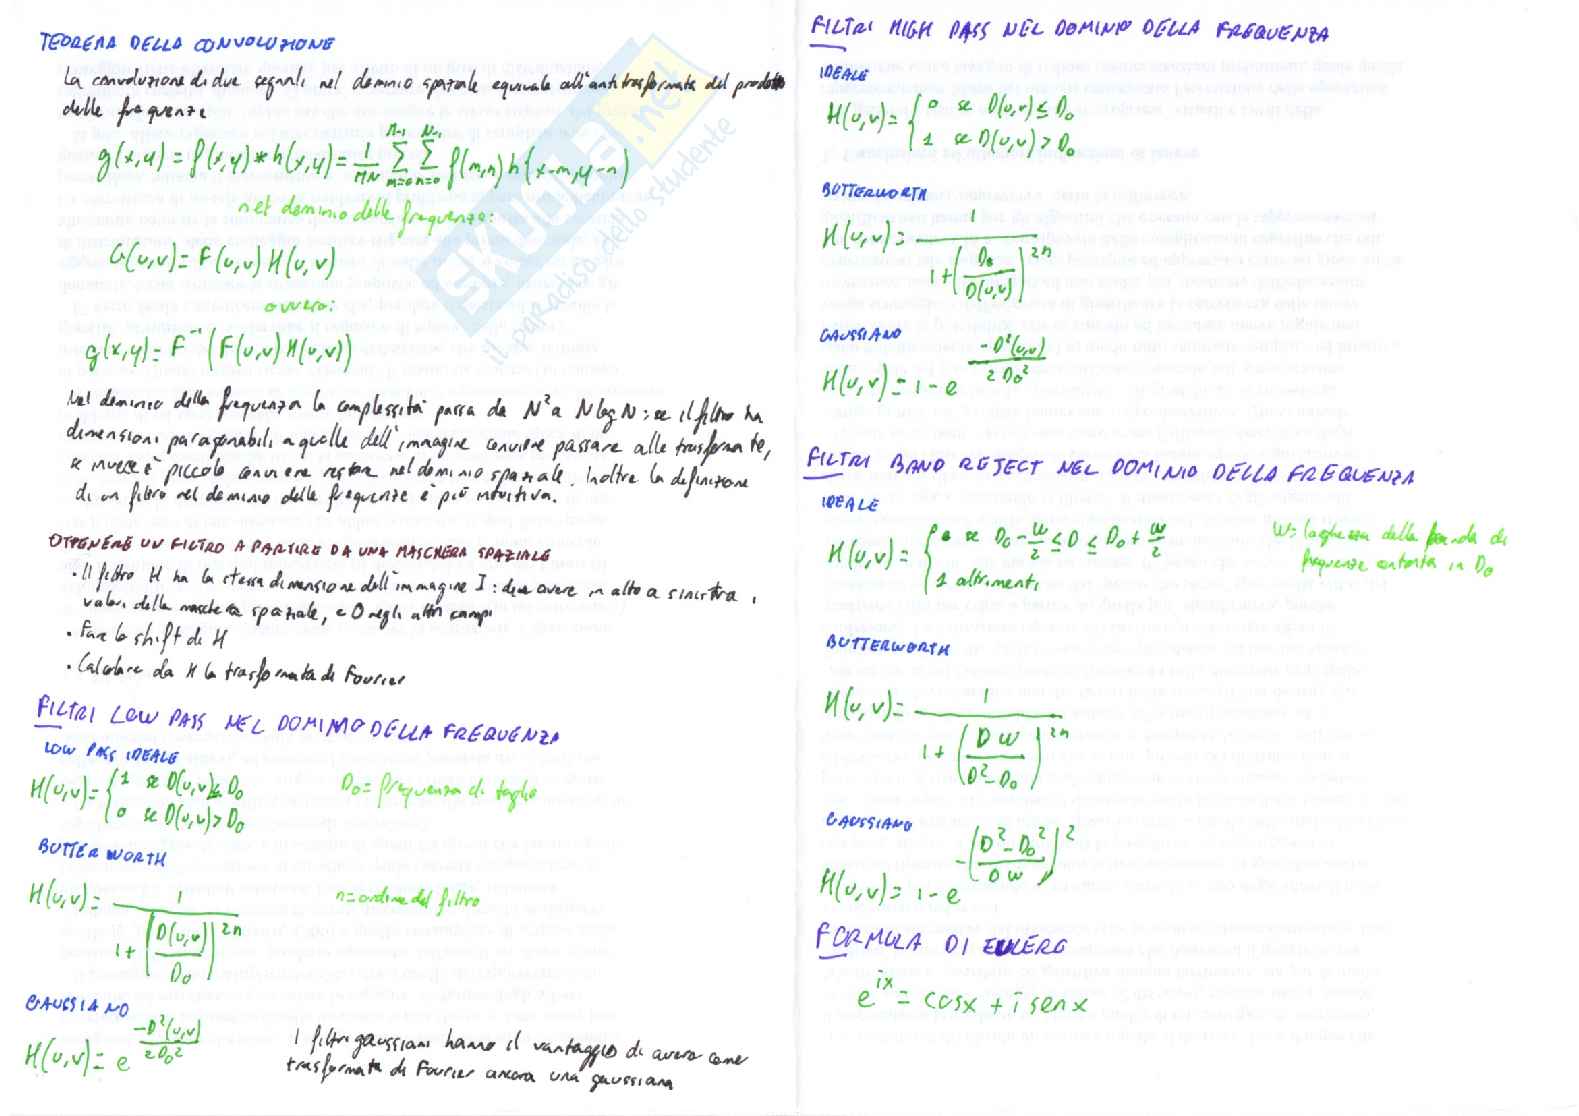 TEOREMA DELLA CONVOLUZIONE
La convoluzione di due segnali nel dominio spaziale equivale all'antitrasformata del prodotto
delle frequenze
g(x,y) = f(x,y) * h(x,y) = 1/MN ∑_{m=0}^{M-1} ∑_{n=0}^{N-1} f(m,n) h(x-m,y-n)
nel dominio delle frequenze:
G(u,v) = F(u,v) H(u,v)
ovvero:
g(x,y) = F^-1 (F(u,v) H(u,v))
Nel dominio della frequenza la complessità passa da N² a N log N: se il filtro ha
dimensioni paragonabili a quelle dell'immagine conviene passare alle trasformate,
se invece è piccolo conviene restare nel dominio spaziale. Inoltre la definizione
di un filtro nel dominio delle frequenze è più intuitiva.
OTTENERE UN FILTRO A PARTIRE DA UNA MASCHERA SPAZIALE
• Il filtro H ha la stessa dimensione dell'immagine I: deve avere in alto a sinistra i
valori della maschera spaziale, e 0 negli altri campi
• Fare lo shift di H
• Calcolare da H la trasformata di Fourier
FILTRI LOW PASS NEL DOMINIO DELLA FREQUENZA
LOW PASS IDEALE
H(u,v) = { 1 se D(u,v) ≤ D₀
0 se D(u,v) > D₀
D₀ = frequenza di taglio
BUTTERWORTH
H(u,v) = 1 / (1 + [D(u,v) / D₀]^2n)
n = ordine del filtro
GAUSSIANO
H(u,v) = e^(-D²(u,v) / 2D₀²)
I filtri gaussiani hanno il vantaggio di avere come
trasformata di Fourier ancora una gaussiana
FILTRI HIGH PASS NEL DOMINIO DELLA FREQUENZA
IDEALE
H(u,v) = { 0 se D(u,v) ≤ D₀
1 se D(u,v) > D₀
BUTTERWORTH
H(u,v) = 1 / (1 + (D₀ / D(u,v))^2n)
GAUSSIANO
H(u,v) = 1 - e^(-D²(u,v) / 2D₀²)
FILTRI BAND REJECT NEL DOMINIO DELLA FREQUENZA
IDEALE
H(u,v) = { 0 se D₀ - W/2 ≤ D ≤ D₀ + W/2
1 altrimenti
W = larghezza della banda di
frequenze centrata in D₀
BUTTERWORTH
H(u,v) = 1 / (1 + (D W / (D² - D₀))^2n)
GAUSSIANO
H(u,v) = 1 - e^(-((D² - D₀²) / D W)²)
FORMULA DI EULERO
e^ix = cosx + i senx
SKUOLA.net
il paradiso dello studente